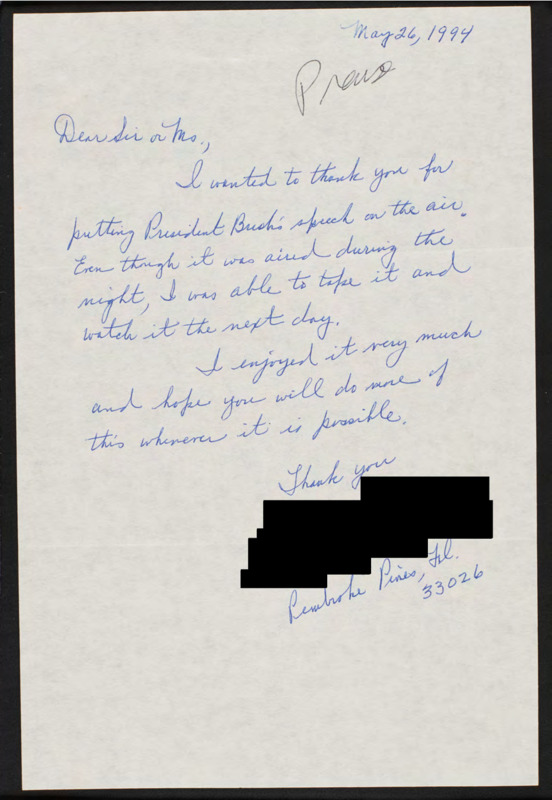 May 26, 1994
Praise
Dear Sir or Ms.,
I wanted to thank you for
putting President Bush's speech on the air.
Even though it was aired during the
night, I was able to tape it and
watch it the next day.
I enjoyed it very much
and hope you will do more of
this whenever it is possible.
Thank you
Pembroke Pines, Fl.
33026